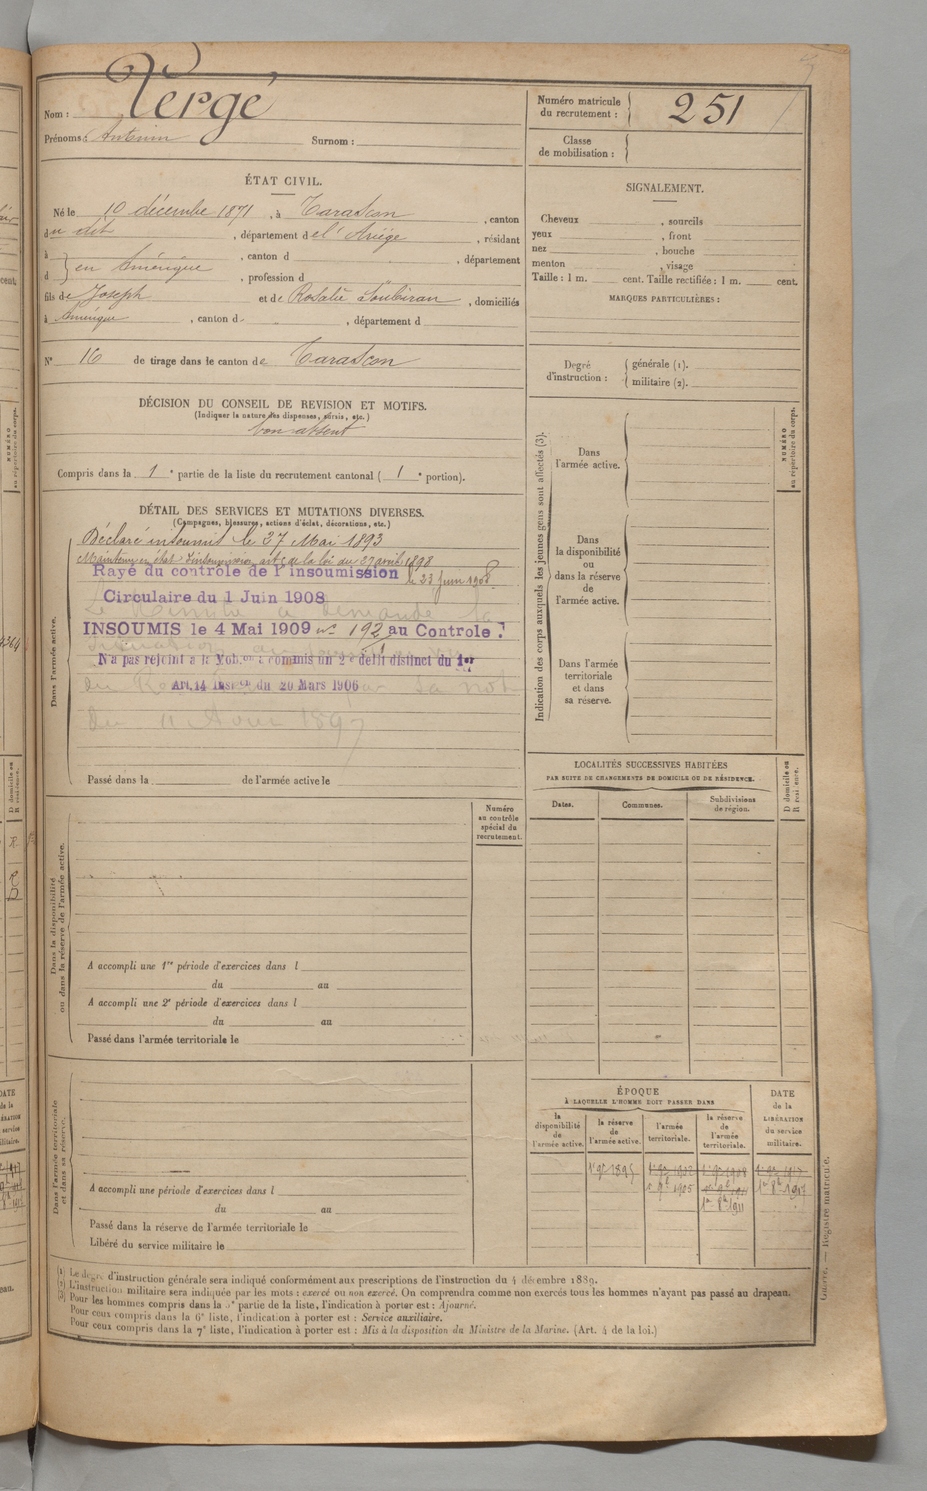 Nom : Vergé
Prénoms : Antonin Surnom :
Numéro matricule du recrutement : 251
Classe de mobilisation :
ÉTAT CIVIL.
Né le 10 décembre 1871, à Tarascon, canton
du dit, département de l'Ariège, résidant
à en Amérique, canton d , département
d , profession d
fils de Joseph et de Rosalie Soubiran, domiciliés
à Amérique, canton d , département d
N° 16 de tirage dans le canton de Tarascon
DÉCISION DU CONSEIL DE REVISION ET MOTIFS.
(Indiquer la nature des dispenses, sursis, etc.)
bon absent
Compris dans la 1e partie de la liste du recrutement cantonal (1e portion).
DÉTAIL DES SERVICES ET MUTATIONS DIVERSES.
(Campagnes, blessures, actions d'éclat, décorations, etc.)
Dans l'armée active.
Déclaré insoumis le 27 Mai 1893
Maintenu en état d'insoumission de la loi du 27 avril 1898
Rayé du contrôle de l'insoumission le 23 Juin 1908
Circulaire du 1 Juin 1908
a demandé la
INSOUMIS le 4 Mai 1909 n° 192 au Controle
N'a pas rejoint à la Mob.on a commis un 2e délit distinct du 1er
Art. 14 Inst.on du 20 Mars 1906
sa note
du 11 Avril 1897
Passé dans la de l'armée active le
Numéro au contrôle spécial du recrutement.
Dans la disponibilité ou dans la réserve de l'armée active.
A accompli une 1re période d'exercices dans l
du au
A accompli une 2e période d'exercices dans l
du au
Passé dans l'armée territoriale le
Dans l'armée territoriale et dans sa réserve.
A accompli une période d'exercices dans l
du au
Passé dans la réserve de l'armée territoriale le
Libéré du service militaire le
SIGNALEMENT.
Cheveux , sourcils
yeux , front
nez , bouche
menton , visage
Taille : 1 m. cent. Taille rectifiée : 1 m. cent.
MARQUES PARTICULIÈRES :
Degré d'instruction : générale (1).
militaire (2).
Indication des corps auxquels les jeunes gens sont affectés (3).
Dans l'armée active.
Dans la disponibilité ou dans la réserve de l'armée active.
Dans l'armée territoriale et dans sa réserve.
NUMÉRO au répertoire du corps.
LOCALITÉS SUCCESSIVES HABITÉES
PAR SUITE DE CHANGEMENTS DE DOMICILE OU DE RÉSIDENCE.
Dates. Communes. Subdivisions de région.
D domicile ou R résidence.
ÉPOQUE
À LAQUELLE L'HOMME DOIT PASSER DANS
DATE de la LIBÉRATION du service militaire.
la disponibilité de l'armée active. la réserve de l'armée active. l'armée territoriale. la réserve de l'armée territoriale.
1905 1917
1911
(1) Le degré d'instruction générale sera indiqué conformément aux prescriptions de l'instruction du 4 décembre 1889.
(2) L'instruction militaire sera indiquée par les mots : exercé ou non exercé. On comprendra comme non exercés tous les hommes n'ayant pas passé au drapeau.
(3) Pour les hommes compris dans la 5e partie de la liste, l'indication à porter est : Ajourné.
Pour ceux compris dans la 6e liste, l'indication à porter est : Service auxiliaire.
Pour ceux compris dans la 7e liste, l'indication à porter est : Mis à la disposition du Ministre de la Marine. (Art. 4 de la loi.)
Registre matricule.